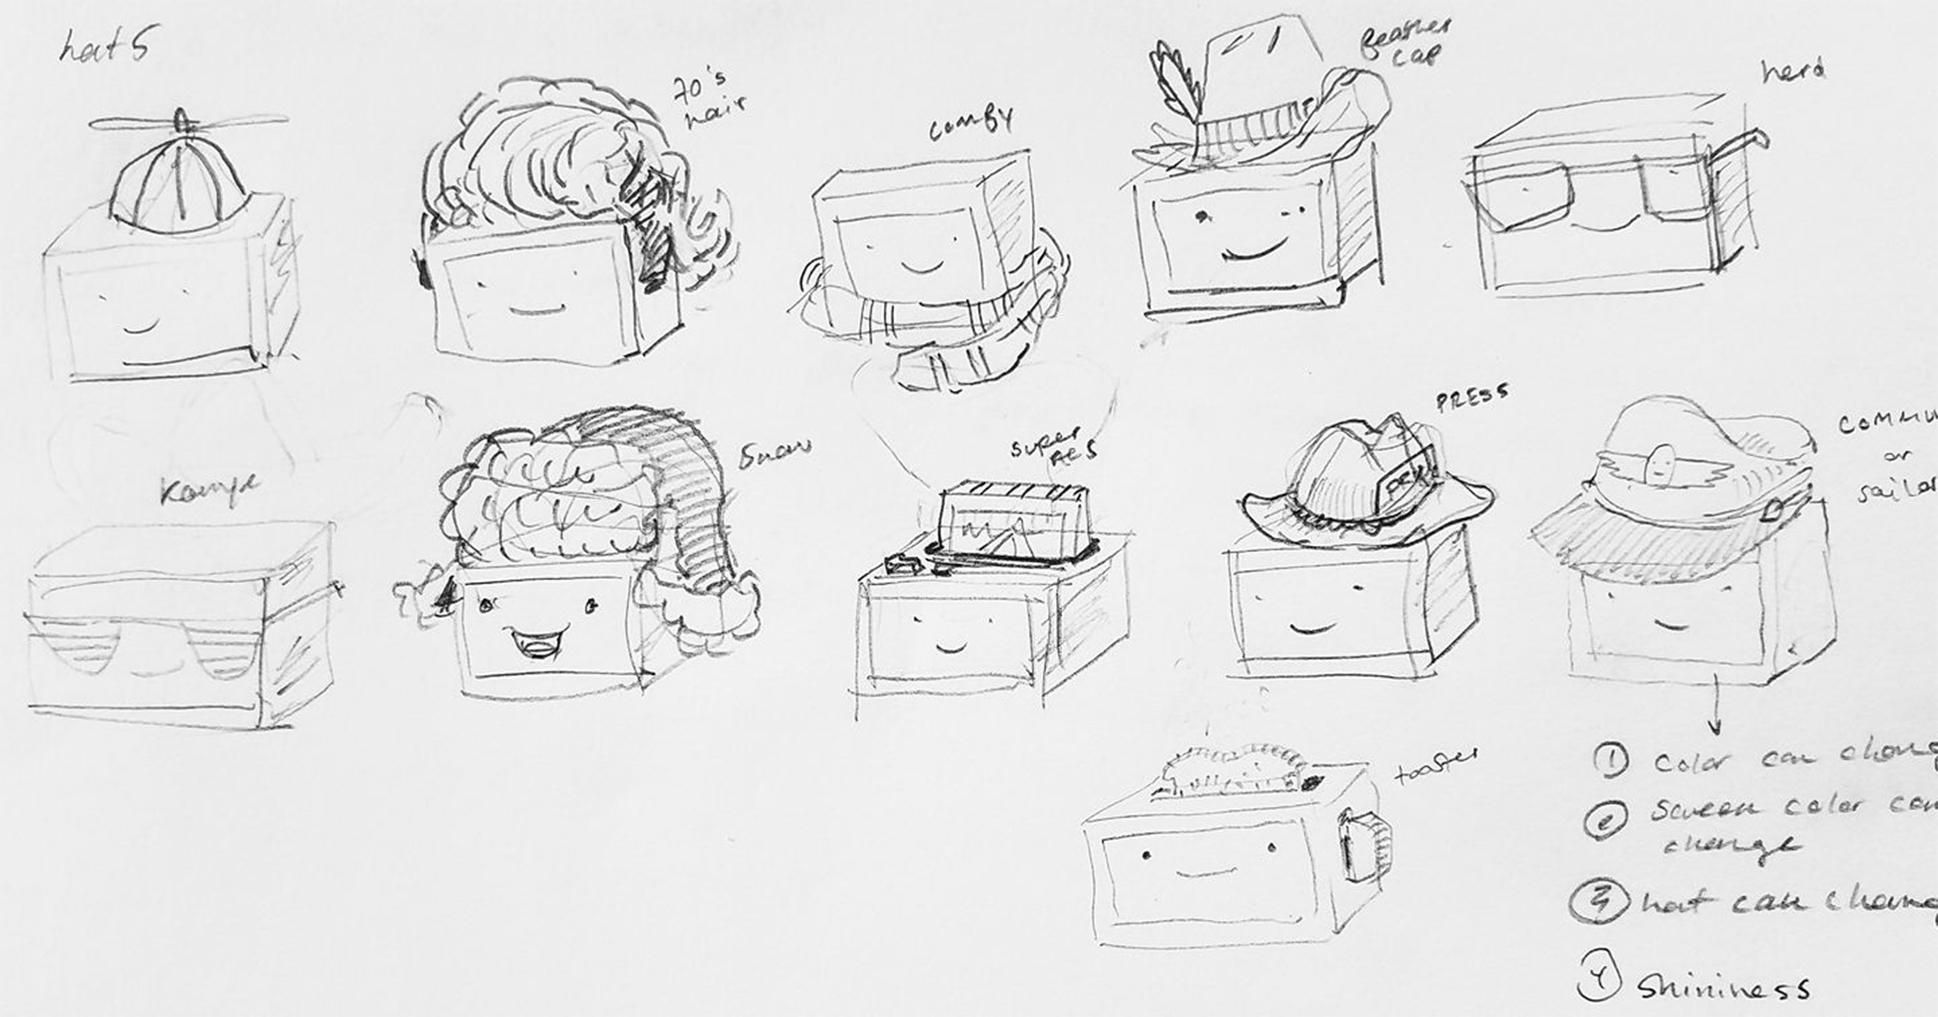 hats
70's
hair
comfy
feather
cap
nerd
Kanye
Snow
super
nes
PRESS
or
sailor
toaster
① Color can
② Screen color can
change
③ hat can
④ Shininess